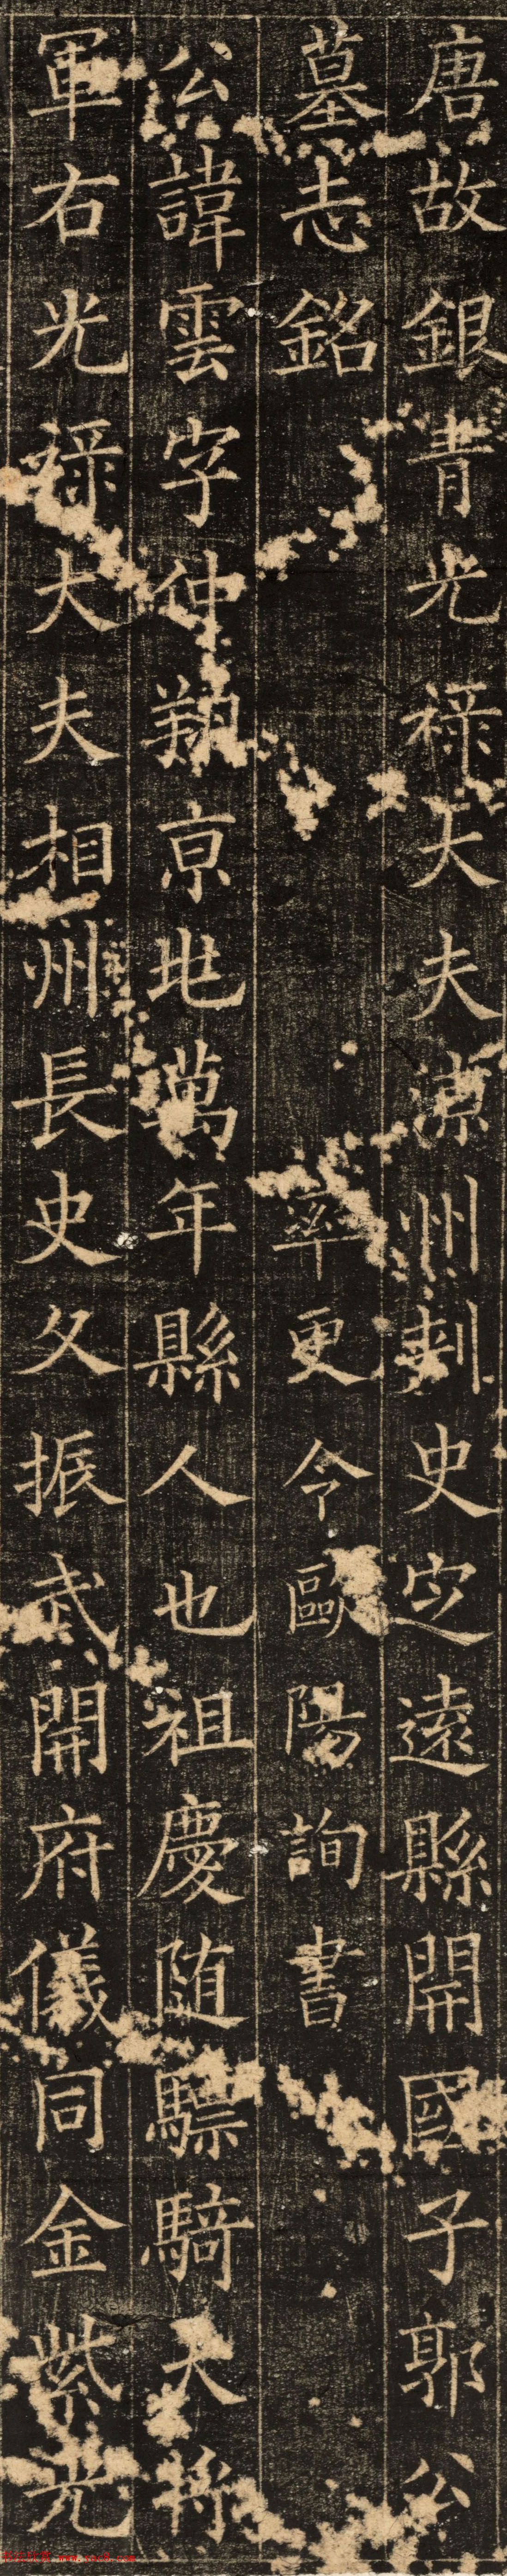 唐故銀青光禄大夫涼州刺史定遠縣開國子郭公
墓志銘 率更令歐陽詢書
公諱雲字仲翔京兆萬年縣人也祖慶随驃騎大將
軍右光禄大夫相州長史父振武開府儀同金紫光